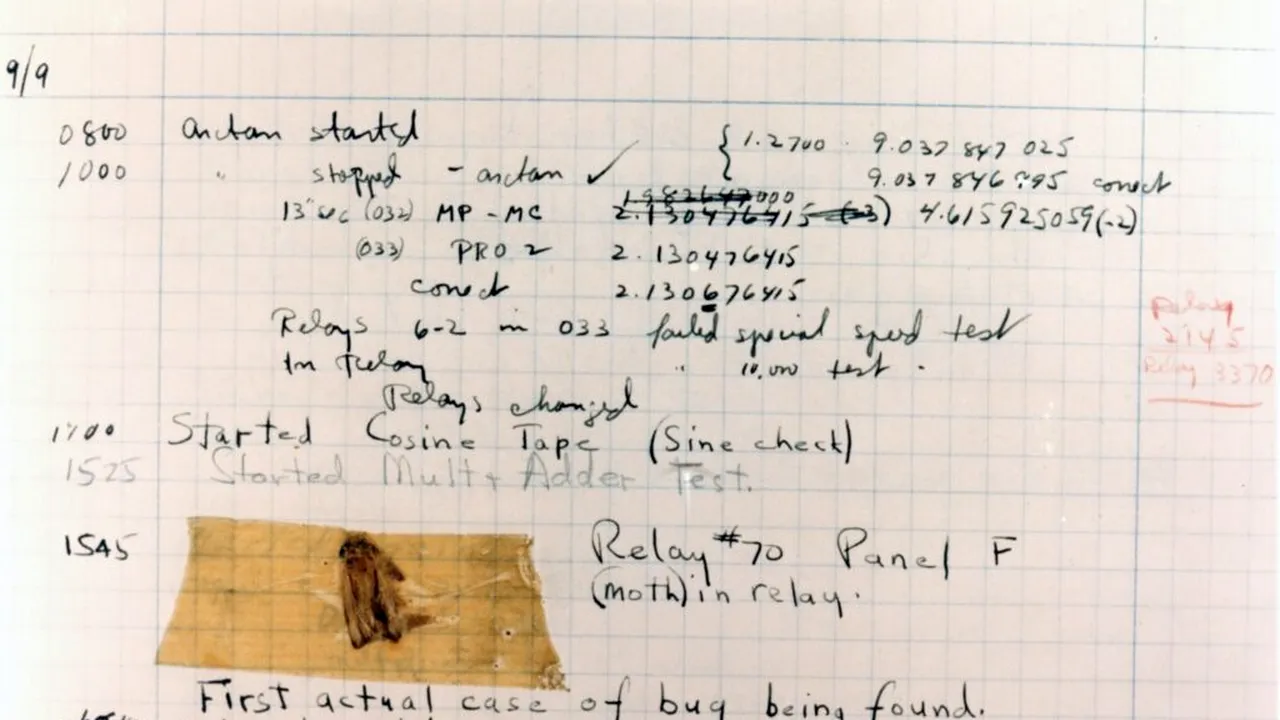 9/9
0800 arctan started { 1.2700 9.037 847 025
1000 " stopped - arctan ✓ 9.037 846 995 conect
13" sec (032) MP - MC 2.130476415 (-3) 4.615925059(-2)
(033) PRO 2 2.130476415
conect 2.130676415
Relays 6-2 in 033 failed special speed test
In Relay " 10,000 test .
Relays changed
Relay
2145
Relay 3370
1700 Started Cosine Tape (Sine check)
1525 Started Mult + Adder Test.
1545 Relay #70 Panel F
(moth) in relay.
First actual case of bug being found.